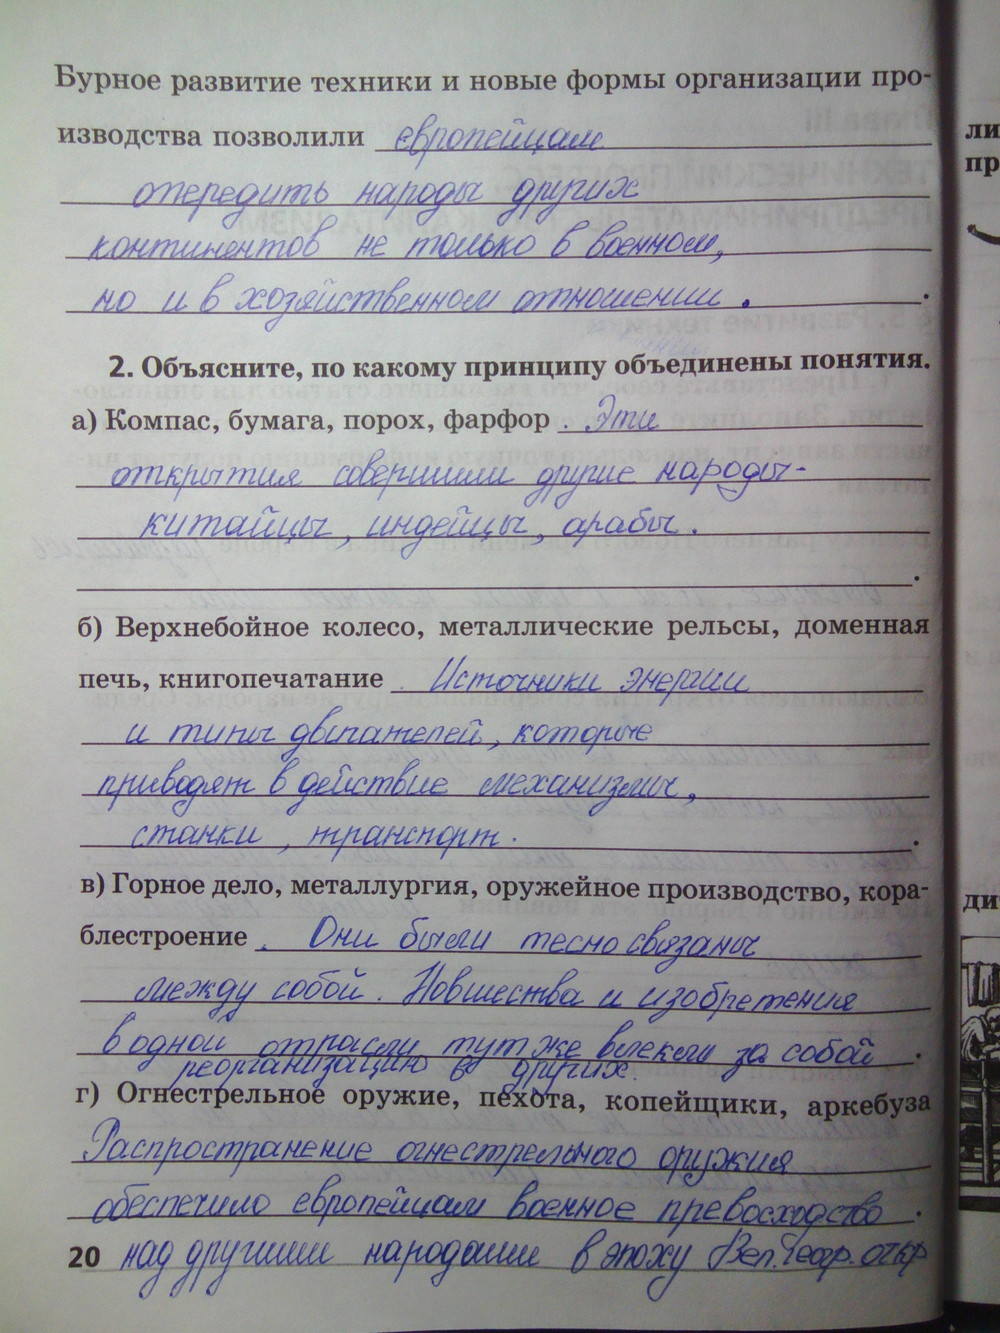 Бурное развитие техники и новые формы организации про-
изводства позволили европейцам
опередить народы других
континентов не только в военном,
но и в хозяйственном отношении.
2. Объясните, по какому принципу объединены понятия.
а) Компас, бумага, порох, фарфор. Эти
открытия совершили другие народы-
китайцы, индейцы, арабы.
б) Верхнебойное колесо, металлические рельсы, доменная
печь, книгопечатание. Источники энергии
и типы двигателей, которые
приводят в действие механизмы,
станки, транспорт.
в) Горное дело, металлургия, оружейное производство, кора-
блестроение. Они были тесно связаны
между собой. Новшества и изобретения
в одной отрасли тут же влекли за собой
реорганизацию в других.
г) Огнестрельное оружие, пехота, копейщики, аркебуза
Распространение огнестрельного оружия
обеспечило европейцам военное превосходство.
20 над другими народами в эпоху Вел. Геогр. откр
ли
пр
ди